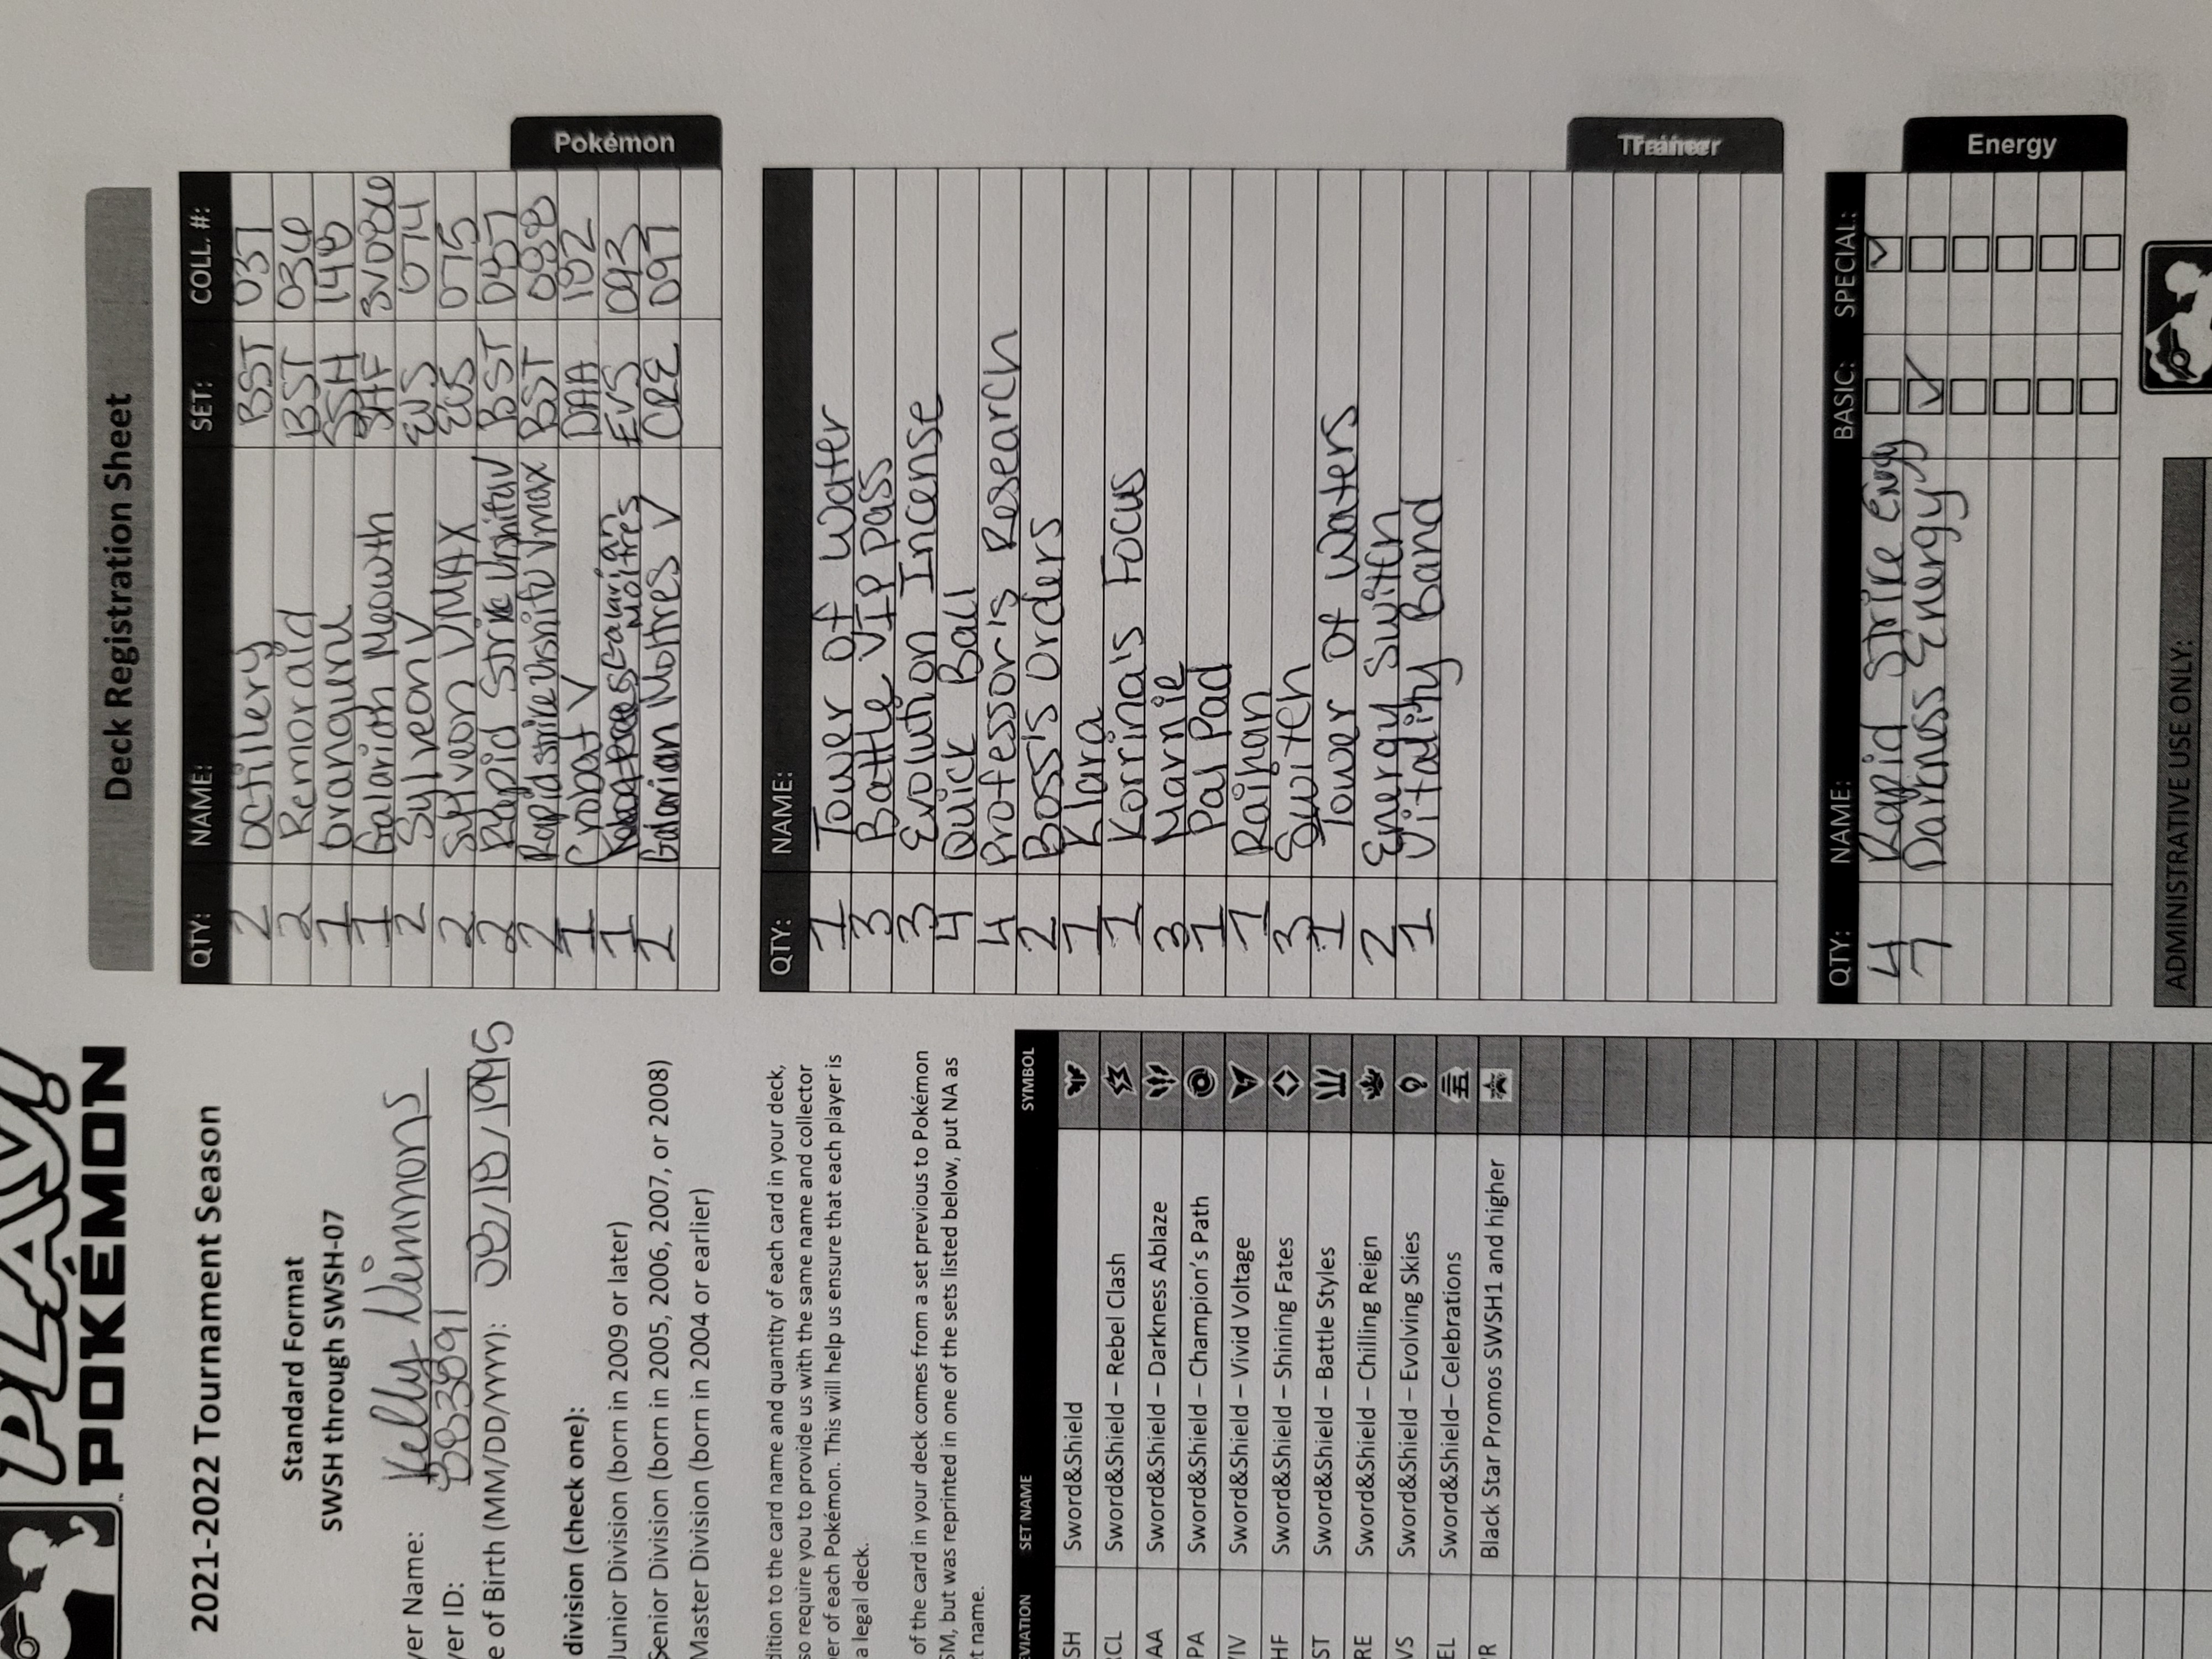 PLAY!
POKÉMON
2021-2022 Tournament Season
Standard Format
SWSH through SWSH-07
yer Name: Kelly Nimmons
yer ID: 883891
e of Birth (MM/DD/YYYY): 08/18/1995
division (check one):
Junior Division (born in 2009 or later)
Senior Division (born in 2005, 2006, 2007, or 2008)
Master Division (born in 2004 or earlier)
dition to the card name and quantity of each card in your deck,
so require you to provide us with the same name and collector
er of each Pokémon. This will help us ensure that each player is
a legal deck.
of the card in your deck comes from a set previous to Pokémon
SM, but was reprinted in one of the sets listed below, put NA as
t name.
EVIATION SET NAME SYMBOL
SH Sword&Shield
CL Sword&Shield – Rebel Clash
AA Sword&Shield – Darkness Ablaze
PA Sword&Shield – Champion's Path
IV Sword&Shield – Vivid Voltage
HF Sword&Shield – Shining Fates
ST Sword&Shield – Battle Styles
RE Sword&Shield – Chilling Reign
VS Sword&Shield – Evolving Skies
EL Sword&Shield– Celebrations
R Black Star Promos SWSH1 and higher
Deck Registration Sheet
QTY: NAME: SET: COLL. #:
2 Octillery BST 037
2 Remoraid BST 036
1 Oranguru SSH 148
1 Galarian Meowth SHF SV086
2 Sylveon V EVS 074
2 Sylveon VMAX EVS 075
2 Rapid Strike Urshifu V BST 087
2 Rapid strike Urshifu Vmax BST 088
1 Crobat V DAA 182
1 Galarian Moltres EVS 093
2 Galarian Moltres V CRE 097
Pokémon
QTY: NAME:
1 Tower of Water
3 Battle VIP pass
3 Evolution Incense
4 Quick Ball
4 Professor's Research
2 Boss's Orders
1 Klara
1 Korrina's Focus
3 Marnie
1 Pal Pad
1 Raihan
3 Switch
1 Tower of Waters
2 Energy Switch
1 Vitality Band
Trainer
QTY: NAME: BASIC: SPECIAL:
4 Rapid Strike Energy
7 Darkness Energy
Energy
ADMINISTRATIVE USE ONLY: